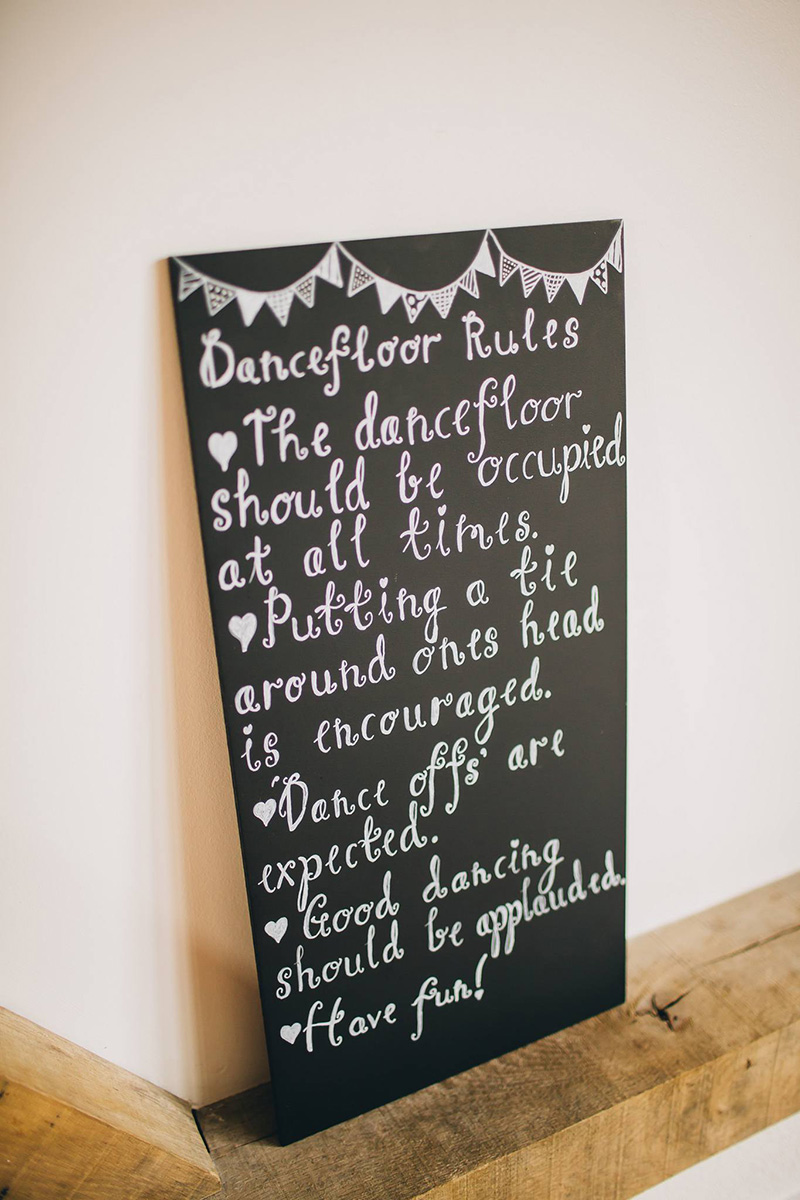 Dancefloor Rules
♥The dancefloor
should be occupied
at all times.
♥Putting a tie
around ones head
is encouraged.
♥'Dance offs' are
expected.
♥Good dancing
should be applauded.
♥Have fun!